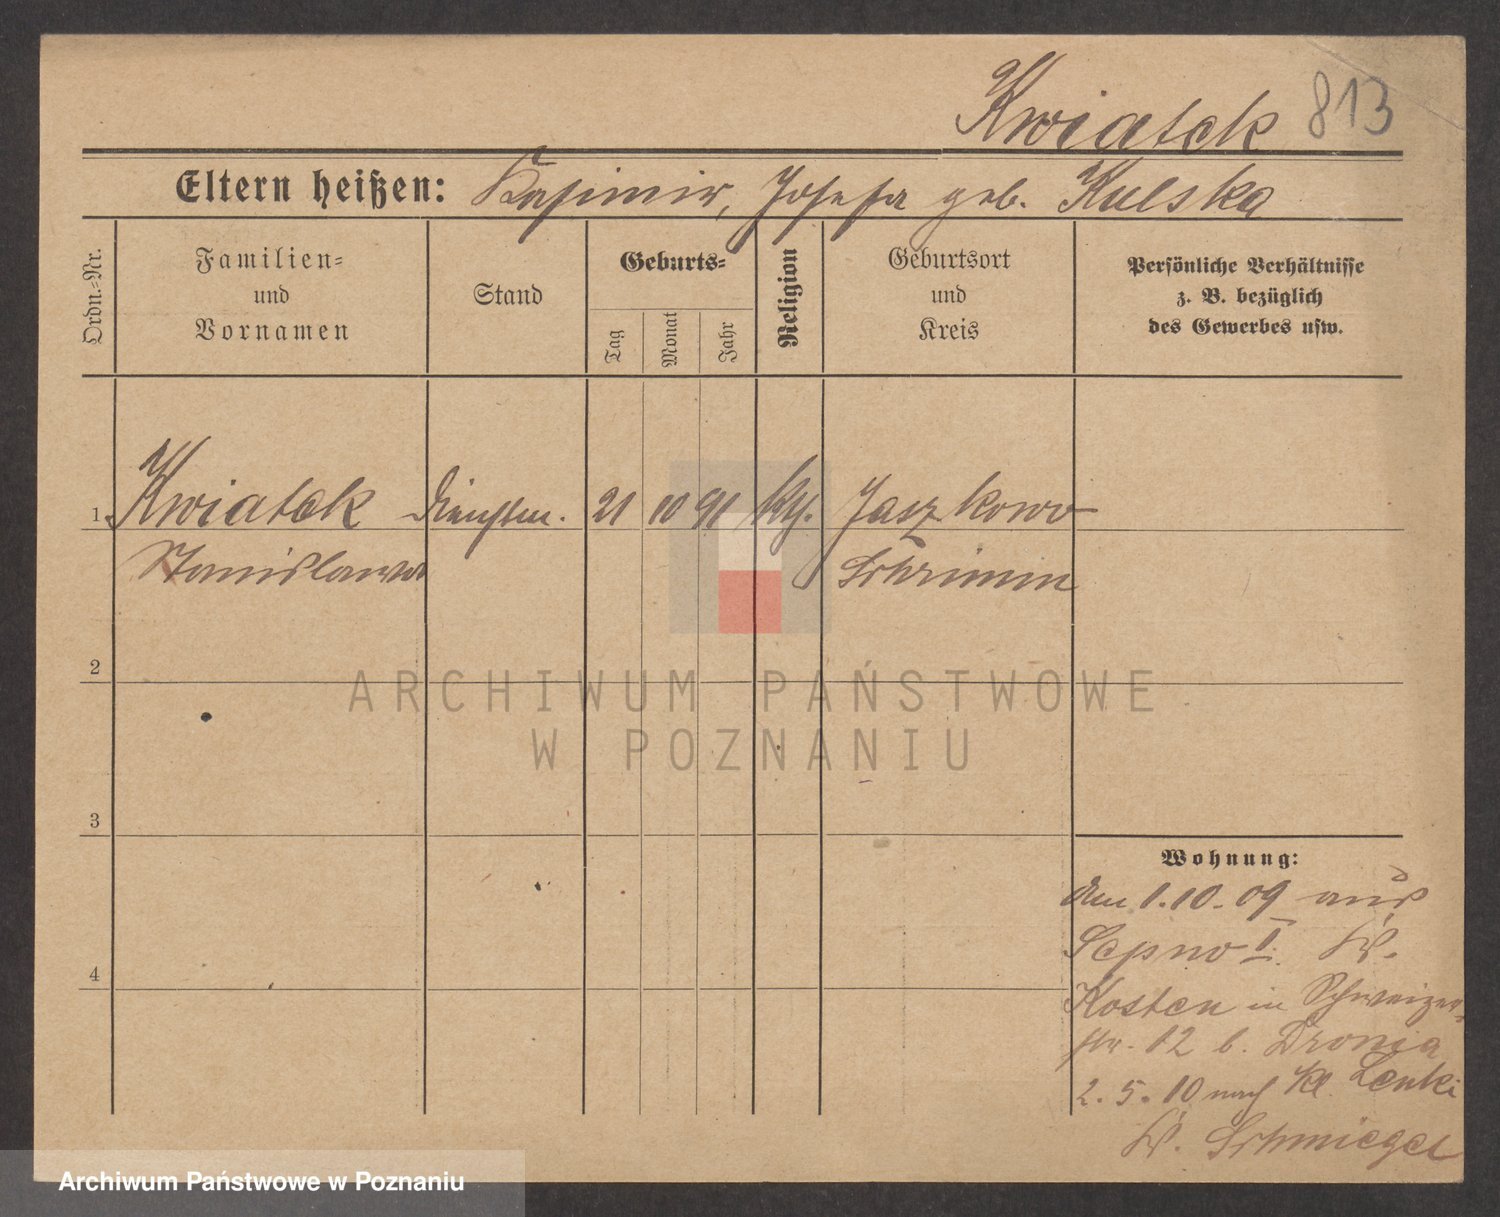 Kwiatek 813
Eltern heißen: Kasimir, Josefa geb. Kulska
Ordn.-Nr.
Familien-
und
Vornamen
Stand
Geburts-
Tag
Monat
Jahr
Religion
Geburtsort
und
Kreis
Persönliche Verhältnisse
z. B. bezüglich
des Gewerbes usw.
1 Kwiatek Dienstm. 21 10 91 kth. Jaszkowo
Stanislawa Schrimm
2
ARCHIWUM PAŃSTWOWE
W POZNANIU
3
4
Wohnung:
den 1.10.09 aus
Sepno I. Kr.
Kosten in Schweizer-
str. 12 b. Dronia
2.5.10 nach Kl. Lenki
Kr. Schmiegel
Archiwum Państwowe w Poznaniu